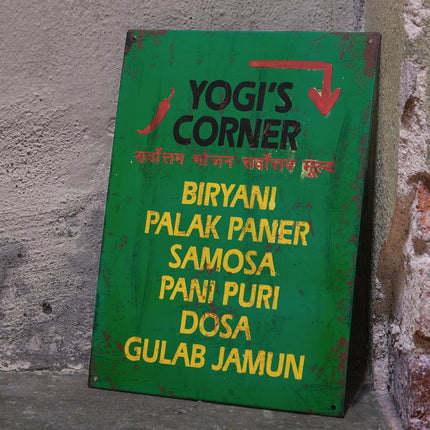 YOGI'S
CORNER
सर्वोत्तम भोजन सर्वोत्तम मूल्य
BIRYANI
PALAK PANER
SAMOSA
PANI PURI
DOSA
GULAB JAMUN